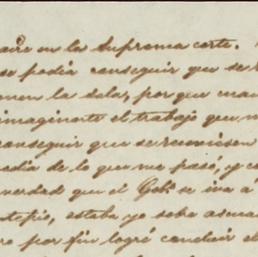 en la Suprema corte.
se podia conseguir que se
la sala, por que cuan
imaginarte el trabajo que
conseguir que se reuniesen
media de lo que me pasó, y co
verdad que el Gobº se iva á
estaba yo sobre ascuas
por fin logré concluir el